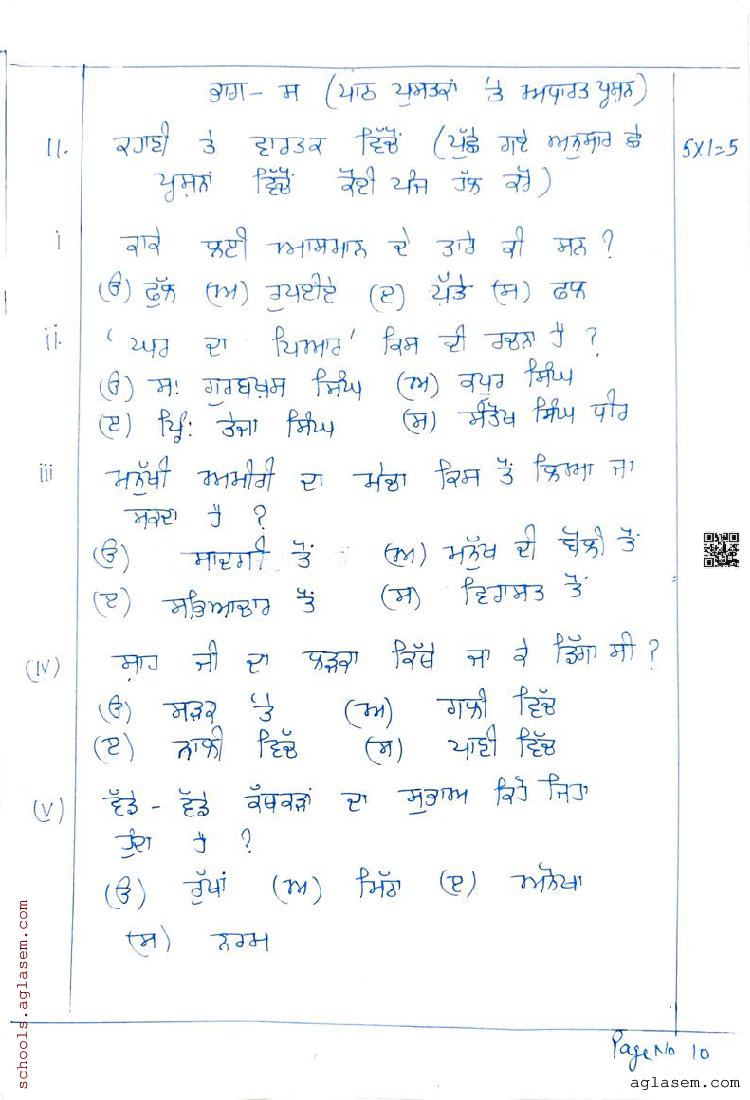 ਭਾਗ - ਸ (ਪਾਠ ਪੁਸਤਕਾਂ 'ਤੇ ਅਧਾਰਤ ਪ੍ਰਸ਼ਨ)
11. ਕਹਾਣੀ ਤੇ ਵਾਰਤਕ ਵਿੱਚੋਂ (ਪੁੱਛੇ ਗਏ ਅਨੁਸਾਰ ਛੇ 5X1=5
ਪ੍ਰਸ਼ਨਾਂ ਵਿੱਚੋਂ ਕੋਈ ਪੰਜ ਹੱਲ ਕਰੋ)
i ਕਾਕੇ ਲਈ ਆਸਮਾਨ ਦੇ ਤਾਰੇ ਕੀ ਸਨ ?
(ੳ) ਫੁੱਲ (ਅ) ਰੁਪਈਏ (ੲ) ਪੱਤੇ (ਸ) ਫਲ
ii. 'ਘਰ ਦਾ ਪਿਆਰ' ਕਿਸ ਦੀ ਰਚਨਾ ਹੈ ?
(ੳ) ਸ: ਗੁਰਬਖ਼ਸ਼ ਸਿੰਘ (ਅ) ਕਪੂਰ ਸਿੰਘ
(ੲ) ਪ੍ਰਿੰ: ਤੇਜਾ ਸਿੰਘ (ਸ) ਸੰਤੋਖ ਸਿੰਘ ਧੀਰ
iii ਮਨੁੱਖੀ ਅਮੀਰੀ ਦਾ ਮੇਚਾ ਕਿਸ ਤੋਂ ਲਿਆ ਜਾ
ਸਕਦਾ ਹੈ ?
(ੳ) ਸਾਦਗੀ ਤੋਂ (ਅ) ਮਨੁੱਖ ਦੀ ਬੋਲੀ ਤੋਂ
(ੲ) ਸਭਿਆਚਾਰ ਤੋਂ (ਸ) ਵਿਰਾਸਤ ਤੋਂ
(iv) ਸ਼ਾਹ ਜੀ ਦਾ ਲੜਕਾ ਕਿੱਥੇ ਜਾ ਕੇ ਡਿੱਗਾ ਸੀ ?
(ੳ) ਸੜਕ 'ਤੇ (ਅ) ਗਲੀ ਵਿੱਚ
(ੲ) ਨਾਲੀ ਵਿੱਚ (ਸ) ਪਾਣੀ ਵਿੱਚ
(v) ਵੱਡੇ - ਵੱਡੇ ਕੱਥਕੜਾਂ ਦਾ ਸੁਭਾਅ ਕਿਹੋ ਜਿਹਾ
ਹੁੰਦਾ ਹੈ ?
(ੳ) ਰੁੱਖਾਂ (ਅ) ਮਿੱਠਾ (ੲ) ਅਨੋਖਾ
(ਸ) ਨਰਮ
Page No 10
schools.aglasem.com
aglasem.com